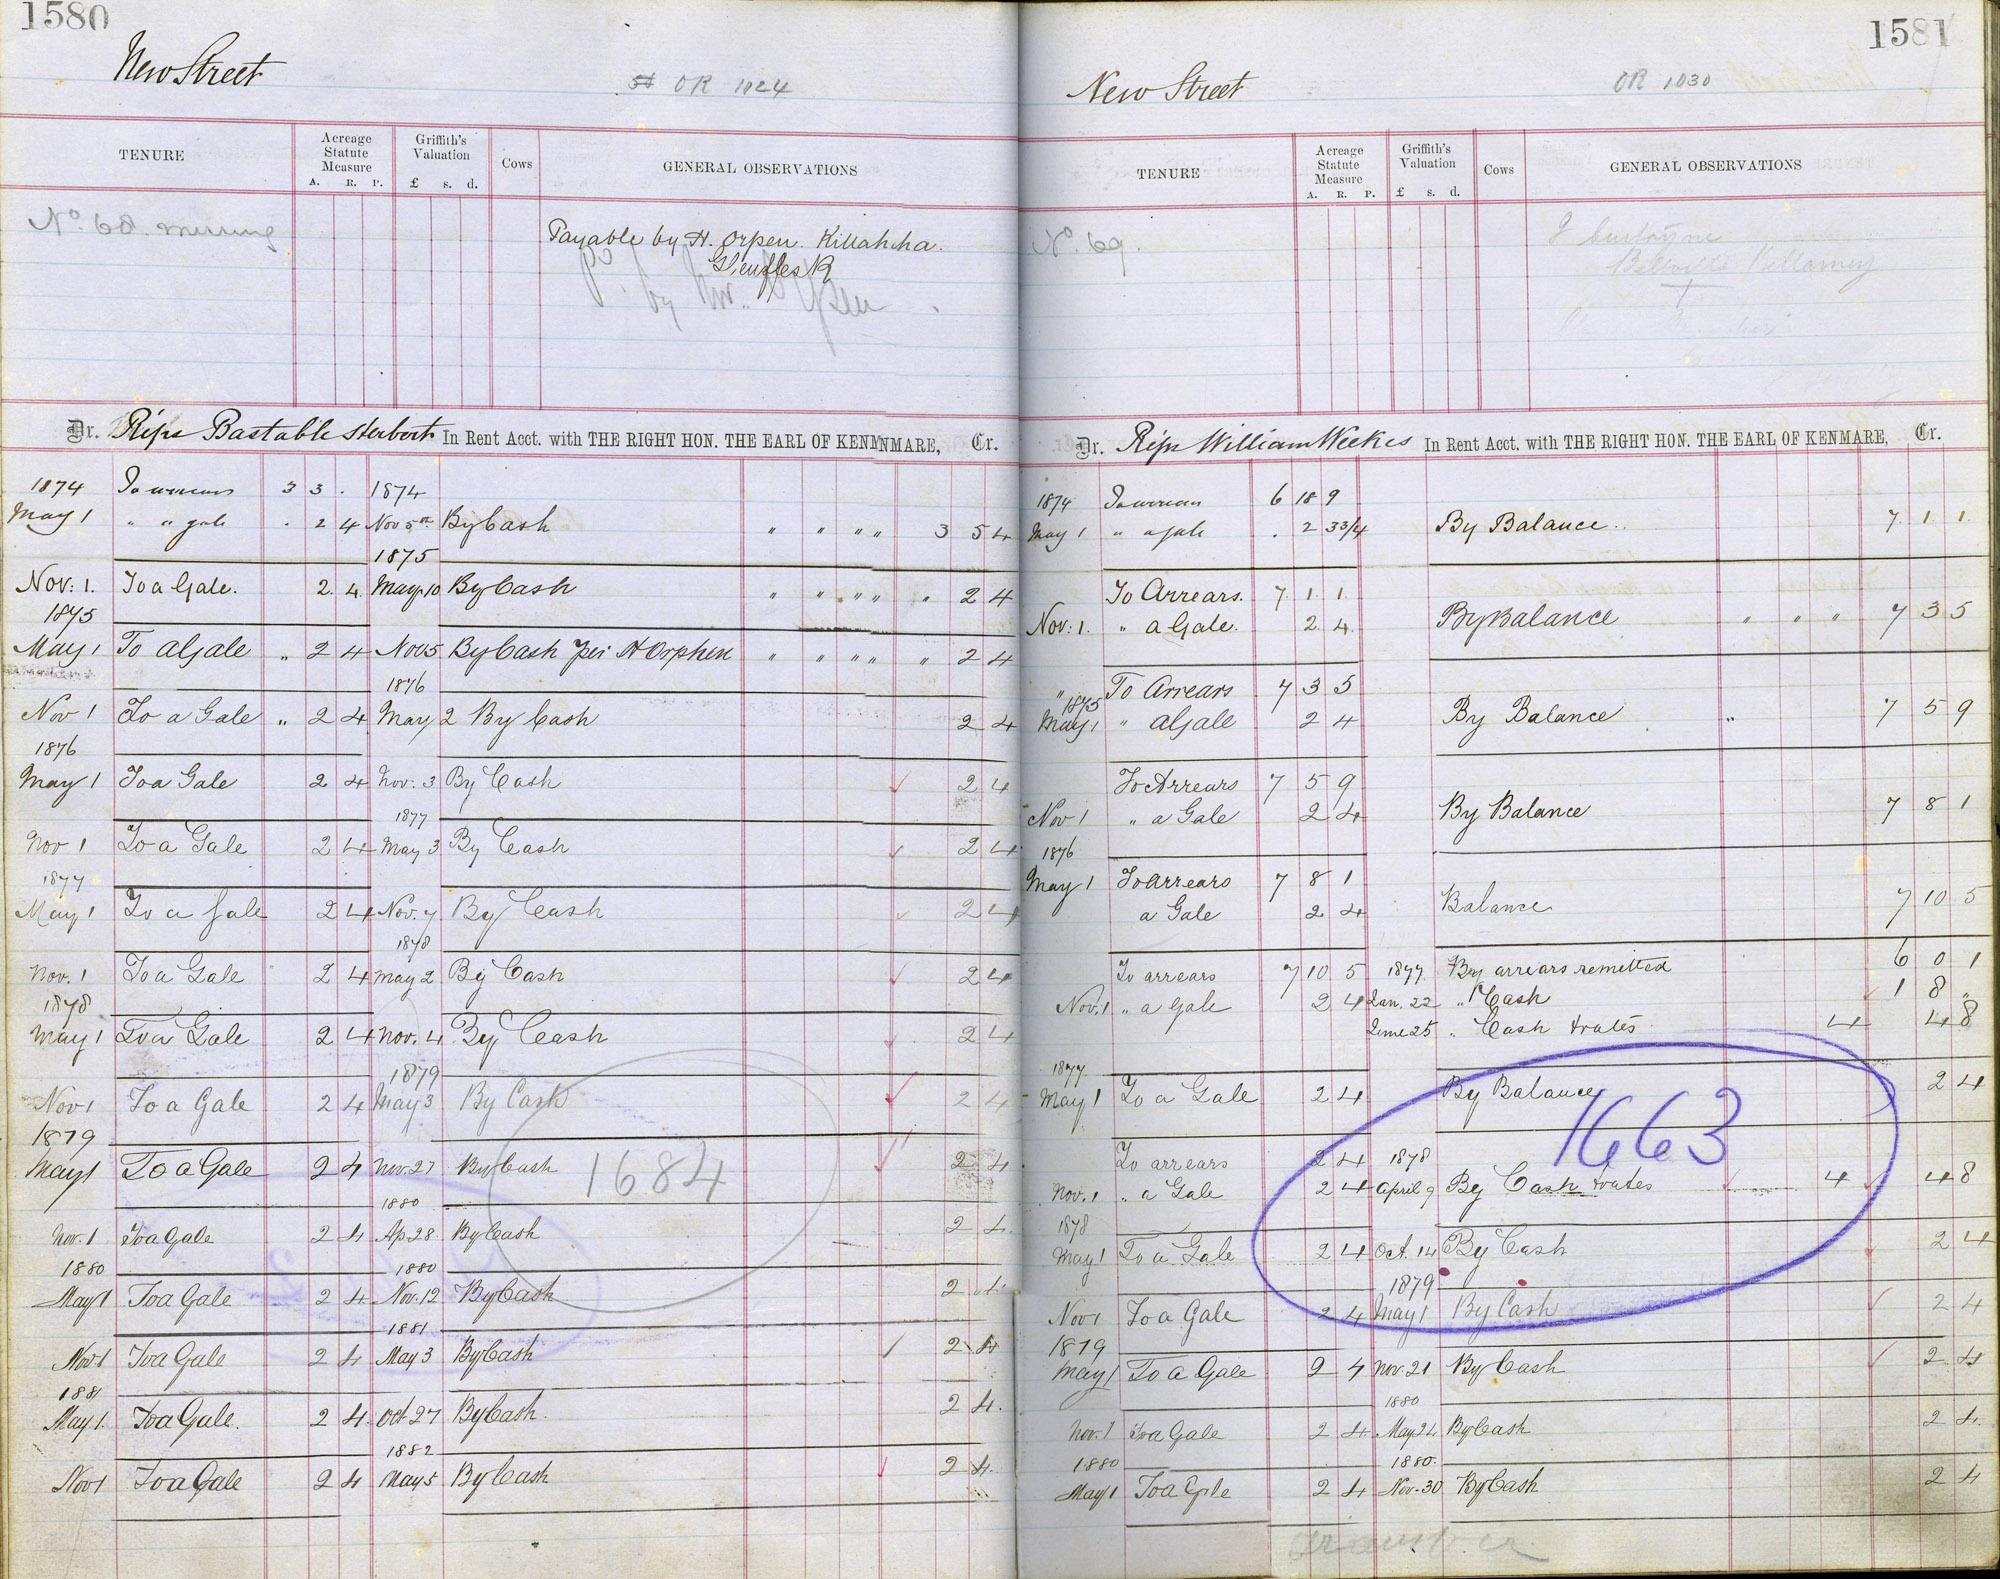 1580
New Street
OR 1024
TENURE
Acreage Statute Measure
A. R. P.
Griffith's Valuation
£ s. d.
Cows
GENERAL OBSERVATIONS
No. 68. missing
Payable by H. Orpen. Killahcha.
Pd. by Mr. Orpen
Dr. Reps Bastable Herbert In Rent Acct. with THE RIGHT HON. THE EARL OF KENMARE, Cr.
1874 To arrears 3 3 . 1874
May 1 " " gale . 2 4 Nov 5th By Cash " " " " 3 5 4
1875
Nov: 1. To a Gale. 2. 4. May 10 By Cash " " " " " 2 4
1875
May 1 To a Gale " 2 4 Nov 5 By Cash per H Orphen " " " " " 2 4
1876
Nov 1 To a Gale " 2 4 May 2 By Cash 2 4
1876
May 1 To a Gale 2 4 Nov. 3 By Cash 2 4
1877
Nov 1 To a Gale 2 4 May 3 By Cash 2 4
1877
May 1 To a Gale 2 4 Nov. 7 By Cash 2 4
1878
Nov. 1 To a Gale 2 4 May 2 By Cash 2 4
1878
May 1 To a Gale 2 4 Nov. 4 By Cash 2 4
1879
Nov 1 To a Gale 2 4 May 3 By Cash 2 4
1879
May 1 To a Gale 2 4 Nov. 27 By Cash 2 4
1684
1880
Nov. 1 To a Gale 2 4 Ap 28 By Cash 2 4.
1880 1880
May 1 To a Gale 2 4. Nov. 12 By Cash 2 4.
1881
Nov 1 To a Gale 2 4. May 3 By Cash 2 4
1881
May 1. To a Gale. 2 4. Oct 27 By Cash. 2 4.
1882
Nov 1 To a Gale 2 4 May 5 By Cash 2 4.
1581
New Street
OR 1030
TENURE
Acreage Statute Measure
A. R. P.
Griffith's Valuation
£ s. d.
Cows
GENERAL OBSERVATIONS
No. 69.
Bellville Killarney
Dr. Reps William Weekes In Rent Acct. with THE RIGHT HON. THE EARL OF KENMARE, Cr.
1874 To arrears 6 18 9
May 1 " a gale . 2 3 3/4 By Balance.. 7. 1 1.
To Arrears. 7. 1. 1.
Nov: 1. " a Gale. 2. 4. By Balance " " " 7 3 5
" To Arrears 7 3 5
1875
May 1 " a Gale 2 4 By Balance " 7 5 9
To Arrears 7 5 9
Nov 1 " a Gale 2 4 By Balance 7 8 1
1876
May 1 To arrears 7 8 1
a Gale 2 4 Balance 7 10 5
To arrears 7 10 5 1877. By arrears remitted 6 0 1
Nov. 1 " a Gale 2 4 Jan. 22 " Cash 1 8 "
June 25 " Cash & rates 4 4 8
1877
May 1 To a Gale 2 4 By Balance 2 4
1663
To arrears 2 4 1878
Nov. 1 " a Gale 2 4 April 9 By Cash & rates 4 4 8
1878
May 1 To a Gale 2 4 Oct. 14 By Cash 2 4
1879
Nov 1 To a Gale 2 4 May 1 By Cash 2 4
1879
May 1 To a Gale 2 4 Nov. 21 By Cash 2 4
1880
Nov. 1 To a Gale 2 4. May 24 By Cash 2 4.
1880 1880.
May 1 To a Gale 2 4. Nov. 30 By Cash 2 4